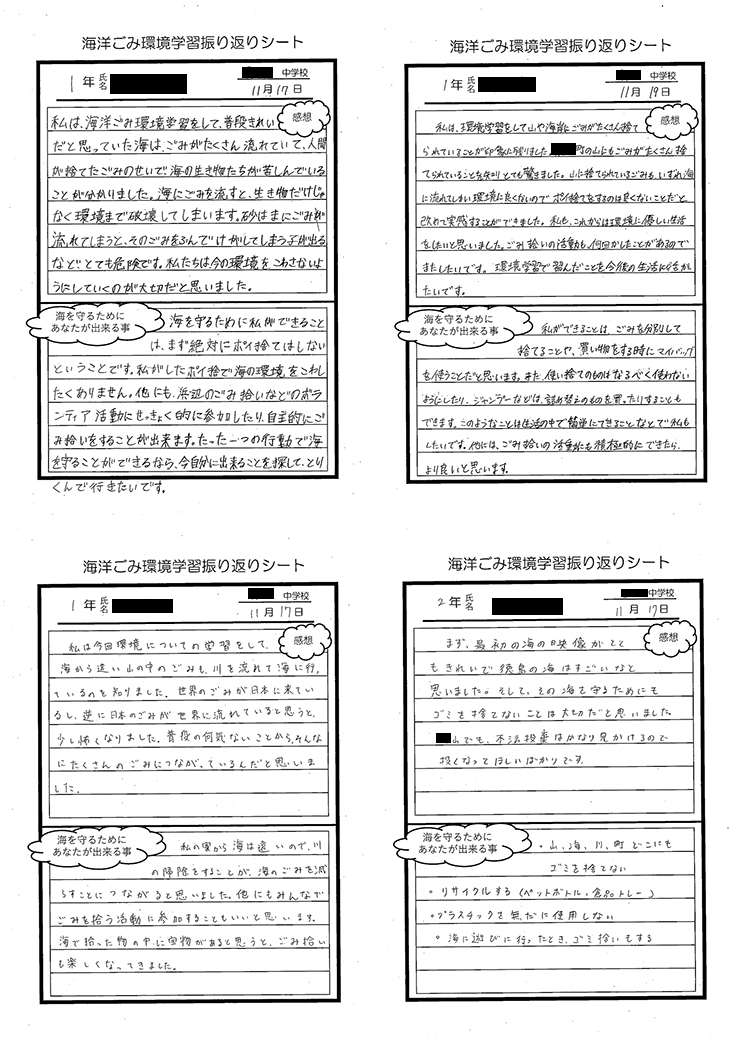 海洋ごみ環境学習振り返りシート
1年 氏名 中学校
11月17日
感想
私は、海洋ごみ環境学習をして、普段きれい
だと思っていた海は、ごみがたくさん流れていて、人間
が捨てたごみのせいで海の生き物たちが苦しんでいる
ことが分かりました。海にごみを流すと、生き物だけじゃ
なく環境まで破壊してしまいます。砂はまにごみが
流れてしまうと、そのごみをふんでけがしてしまう子が出る
などとても危険です。私たちは今の環境をこわさないよ
うにしていくのが大切だと思いました。
海を守るために
あなたが出来る事
海を守るために私ができること
は、まず絶対にポイ捨てはしない
ということです。私がしたポイ捨で海の環境をこわし
たくありません。他にも、浜辺のごみ拾いなどのボラ
ンティア活動にせっきょく的に参加したり、自主的にご
み拾いをすることが出来ます。たった一つの行動で海
を守ることができるなら、今自分に出来ることを探して、とり
くんで行きたいです。
海洋ごみ環境学習振り返りシート
1年 氏名 中学校
11月19日
感想
私は、環境学習をして山や海岸にごみがたくさん捨て
られていることが印象に残りました 町の山にもごみがたくさん捨
てられていることを知りとても驚きました。山に捨てられているごみも、いずれ海
に流れてしまい環境に良くないのでポイ捨てをするのは良くないことだと
改めて実感することができました。私も、これからは環境に優しい生活
をしたいと思いました。ごみ拾いの活動も、何回かしたことがあるので
またしたいです。環境学習で習んだことを今後の生活に活かし
たいです。
海を守るために
あなたが出来る事
私ができることは、ごみを分別して
捨てることや、買い物をする時にマイバッグ
を使うことだと思います。また、使い捨てのものはなるべく使わない
ようにしたり、シャンプーなどは、詰め替えのものを買ったりすることも
できます。このようなことは生活の中で簡単にできることなので私も
したいです。他には、ごみ拾いの活動にも積極的にできたら、
より良いと思います。
海洋ごみ環境学習振り返りシート
1年 氏名 中学校
11月17日
感想
私は今回環境についての学習をして、
海から遠い山の中のごみも、川を流れて海に行っ
ているのを知りました。世界のごみが日本に来てい
るし、逆に日本のごみが世界に流れていると思うと、
少し怖くなりました。普段の何気ないことから、そんな
にたくさんのごみにつながっているんだと思いま
した。
海を守るために
あなたが出来る事
私の家から海は遠いので、川
の掃除をすることが、海のごみを減
らすことにつながると思いました。他にもみんなで
ごみを拾う活動に参加することもいいと思います。
海で拾った物の中に宝物があると思うと、ごみ拾い
も楽しくなってきました。
海洋ごみ環境学習振り返りシート
2年 氏名 中学校
11月17日
感想
まず、最初の海の映像がとて
もきれいで徳島の海はすごいなと
思いました。そして、その海を守るためにも
ゴミを捨てないことは大切だと思いました
山でも、不法投棄はかなり見かけるので
無くなってほしいばかりです。
海を守るために
あなたが出来る事
・山、海、川、町どこにも
ゴミを捨てない
・リサイクルする(ペットボトル・食品トレー)
・プラスチックを無だに使用しない
・海に遊びに行ったとき、ゴミ拾いもする